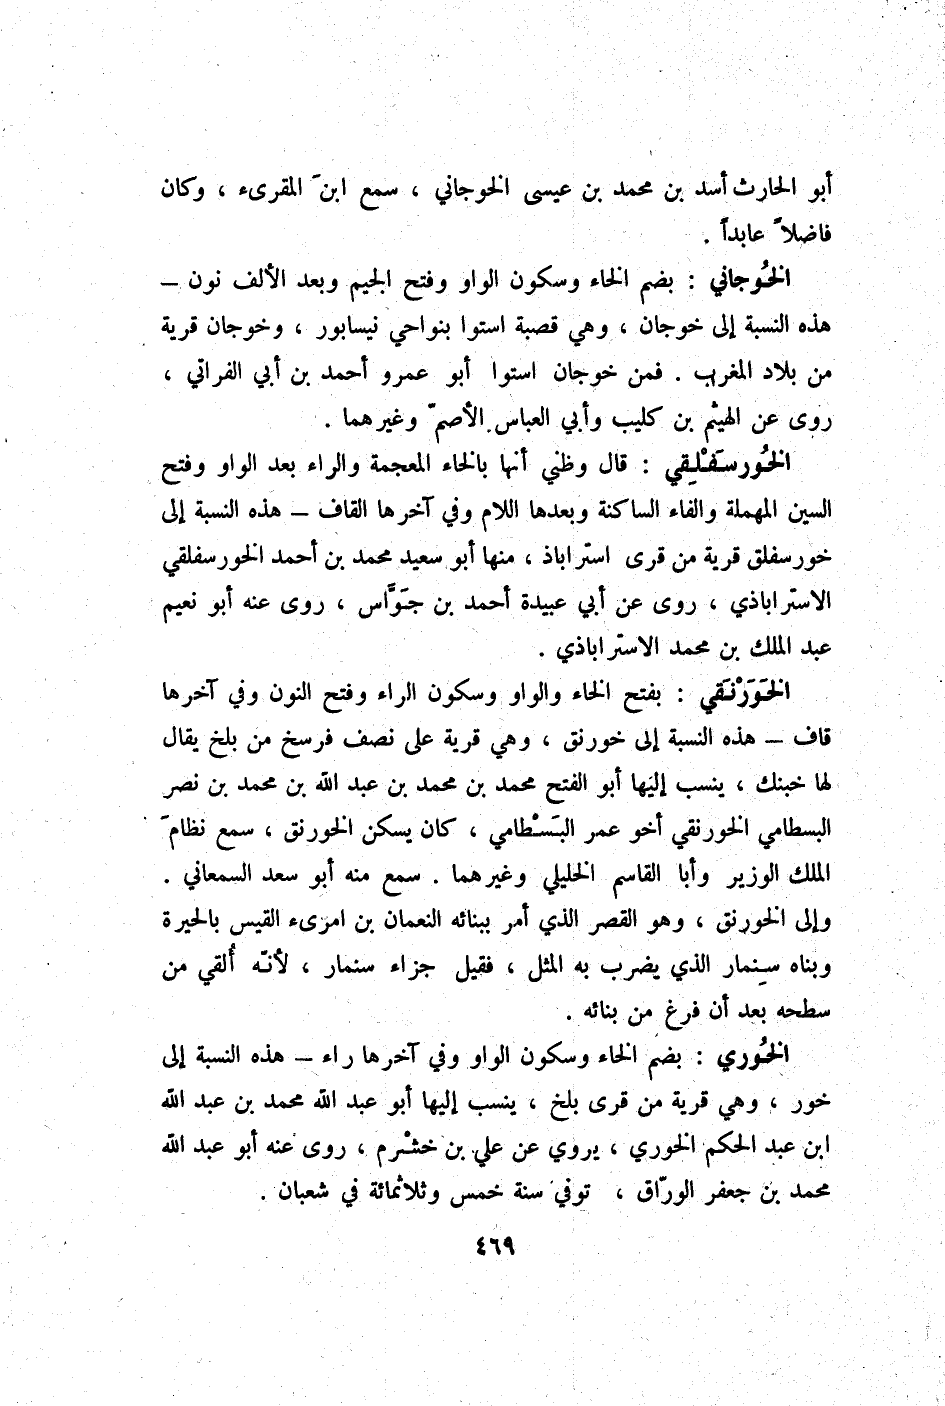 أبو الحارث أسد بن محمد بن عيسى الخوجاني ، سمع ابنَ المقرىء ، وكان
فاضلاً عابداً .
الخُوجاني : بضم الخاء وسكون الواو وفتح الجيم وبعد الألف نون –
هذه النسبة إلى خوجان ، وهي قصبة استوا بنواحي نيسابور ، وخوجان قرية
من بلاد المغرب . فمن خوجان استوا أبو عمرو أحمد بن أبي الفراتي ،
روى عن الهيثم بن كليب وأبي العباس الأصمّ وغيرهما .
الخُورسَفْلِقي : قال وظني أنها بالخاء المعجمة والراء بعد الواو وفتح
السين المهملة والفاء الساكنة وبعدها اللام وفي آخرها القاف – هذه النسبة إلى
خورسفلق قرية من قرى استراباذ ، منها أبو سعيد محمد بن أحمد الخورسفلقي
الاستراباذي ، روى عن أبي عبيدة أحمد بن جَوَّاس ، روى عنه أبو نعيم
عبد الملك بن محمد الاستراباذي .
الخَوَرْنَقي : بفتح الخاء والواو وسكون الراء وفتح النون وفي آخرها
قاف – هذه النسبة إلى خورنق ، وهي قرية على نصف فرسخ من بلخ يقال
لها خبنك ، ينسب إليها أبو الفتح محمد بن محمد بن عبد الله بن محمد بن نصر
البسطامي الخورنقي أخو عمر البَسْطامي ، كان يسكن الخورنق ، سمع نظامَ
الملك الوزير وأبا القاسم الخليلي وغيرهما . سمع منه أبو سعد السمعاني .
وإلى الخورنق ، وهو القصر الذي أمر ببنائه النعمان بن امرىء القيس بالحيرة
وبناه سِنمار الذي يضرب به المثل ، فقيل جزاء سنمار ، لأنّه أُلقي من
سطحه بعد أن فرغ من بنائه .
الخُوري : بضم الخاء وسكون الواو وفي آخرها راء – هذه النسبة إلى
خور ، وهي قرية من قرى بلخ ، ينسب إليها أبو عبد الله محمد بن عبد الله
ابن عبد الحكم الخوري ، يروي عن علي بن خشْرم ، روى عنه أبو عبد الله
محمد بن جعفر الورّاق ، توفي سنة خمس وثلاثمائة في شعبان .
٤٦٩